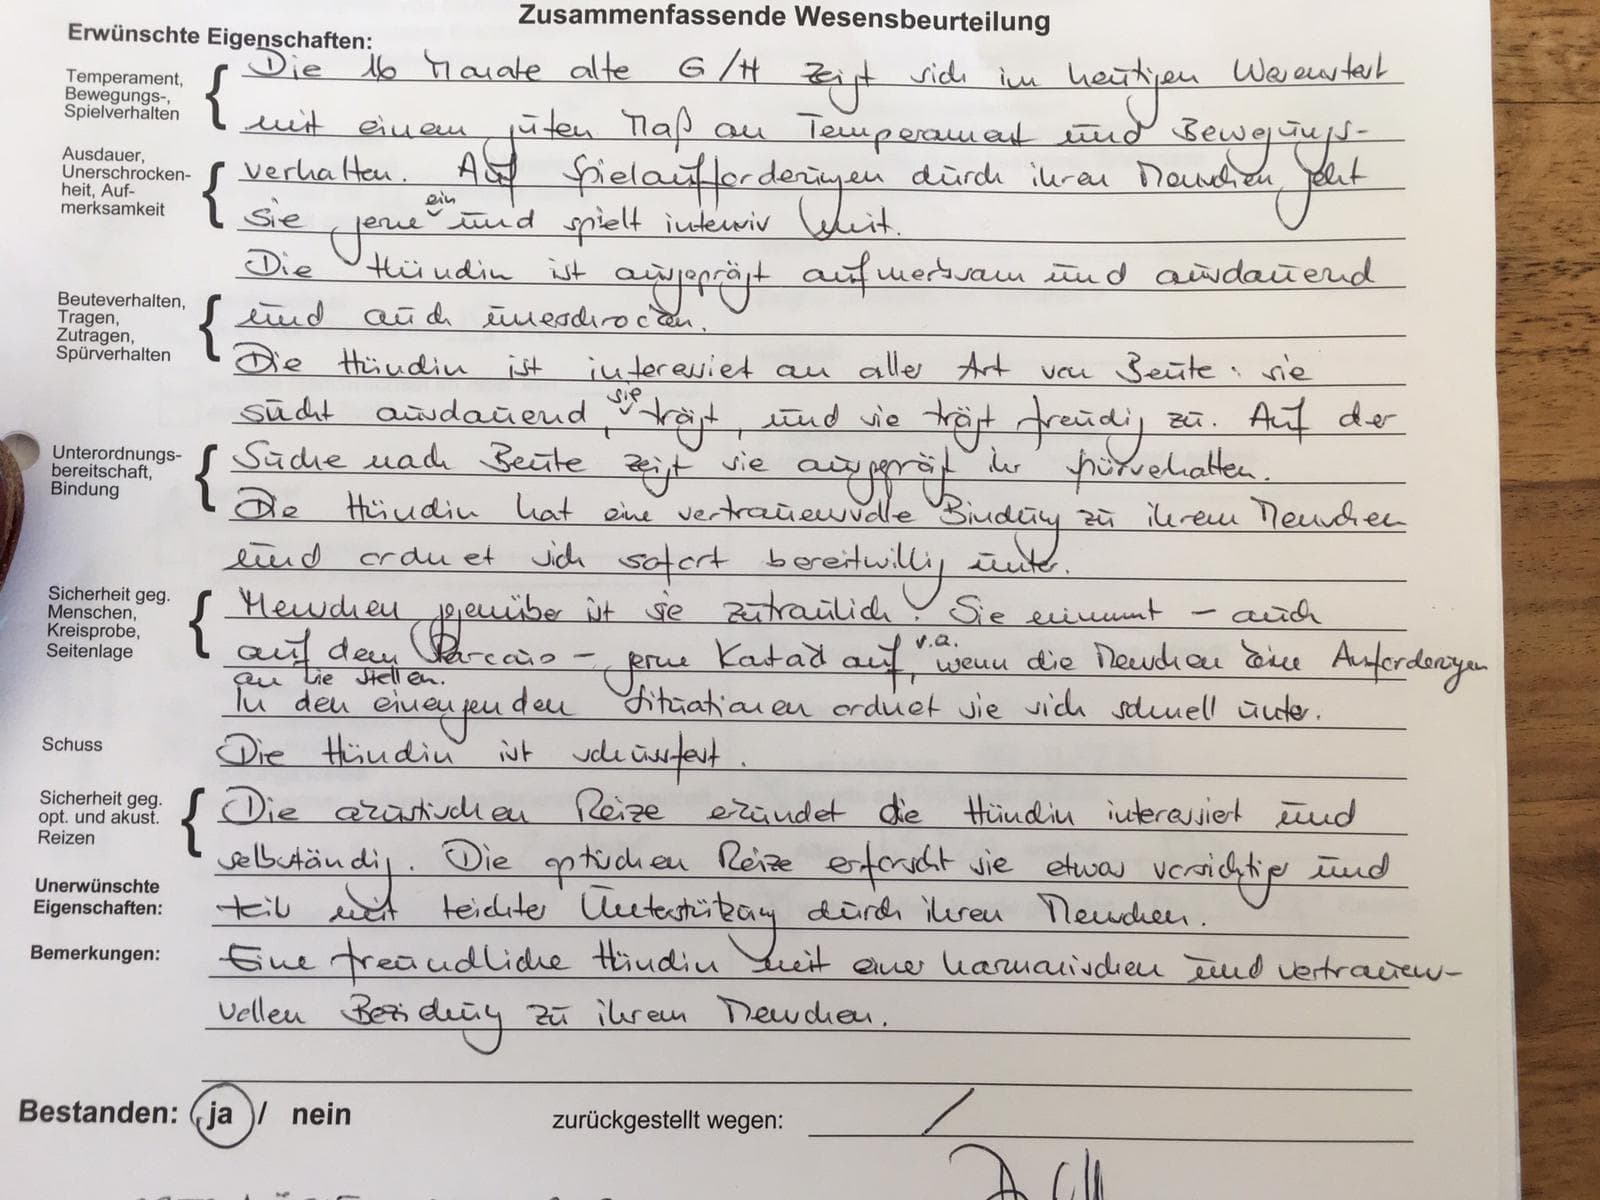 Zusammenfassende Wesensbeurteilung
Erwünschte Eigenschaften:
Temperament,
Bewegungs-,
Spielverhalten
Die 16 Monate alte G/H zeigt sich im heutigen Wesenstest
mit einem guten Maß an Temperament und Bewegungs-
Ausdauer,
Unerschrocken-
heit, Auf-
merksamkeit
verhalten. Auf Spielaufforderungen durch ihren Menschen geht
sie gerne ein und spielt intensiv mit.
Die Hündin ist ausgeprägt aufmerksam und ausdauernd
Beuteverhalten,
Tragen,
Zutragen,
Spürverhalten
und auch unerschrocken.
Die Hündin ist interessiert an aller Art von Beute: sie
sucht ausdauernd, sie trägt, und sie trägt freudig zu. Auf der
Unterordnungs-
bereitschaft,
Bindung
Suche nach Beute zeigt sie ausgeprägt ihr Spürverhalten.
Die Hündin hat eine vertrauensvolle Bindung zu ihrem Menschen
und ordnet sich sofort bereitwillig unter.
Sicherheit geg.
Menschen,
Kreisprobe,
Seitenlage
Menschen gegenüber ist sie zutraulich. Sie nimmt – auch
auf dem Parcours – gerne Kontakt auf, v.a. wenn die Menschen keine Anforderungen
an sie stellen.
In den einengenden Situationen ordnet sie sich schnell unter.
Schuss
Die Hündin ist schussfest.
Sicherheit geg.
opt. und akust.
Reizen
Die akustischen Reize erkundet die Hündin interessiert und
selbständig. Die optischen Reize erforscht sie etwas vorsichtiger und
Unerwünschte
Eigenschaften:
teils mit leichter Unterstützung durch ihren Menschen.
Bemerkungen:
Eine freundliche Hündin mit einer harmonischen und vertrauens-
vollen Beziehung zu ihrem Menschen.
Bestanden: ja / nein
zurückgestellt wegen: /